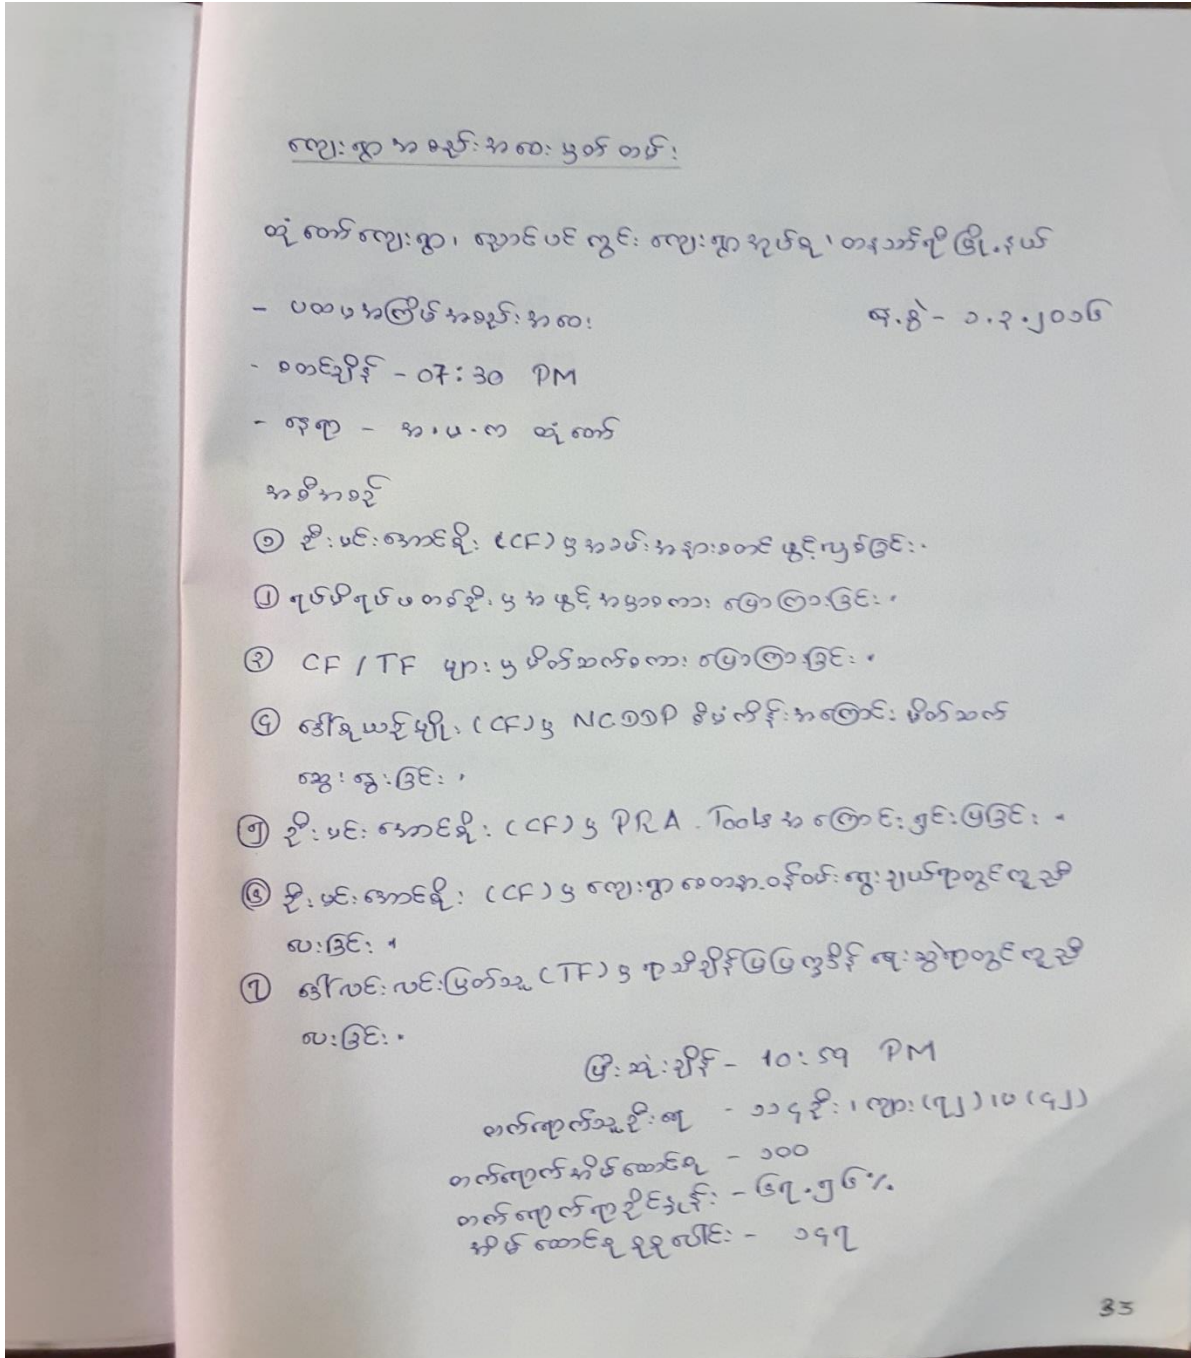 ကျေးရွာအစည်းအဝေးမှတ်တမ်း
ထုံတော်ကျေးရွာ၊ ညောင်ပင်ကွင်း ကျေးရွာအုပ်စု၊ တနင်္သာရီမြို့နယ်
- ပထမအကြိမ်အစည်းအဝေး ရက်စွဲ - ၁.၃.၂၀၁၆
- စတင်ချိန် - 07:30 PM
- နေရာ - အ.မ.က ထုံတော်
အစီအစဉ်
၁ ဦးမင်းအောင်စိုး (CF) မှ အခမ်းအနားစတင်ဖွင့်လှစ်ခြင်း။
၂ ရပ်မိရပ်ဖတစ်ဦးမှ အဖွင့်အမှာစကား ပြောကြားခြင်း။
၃ CF / TF များမှ မိတ်ဆက်စကား ပြောကြားခြင်း။
၄ ဒေါ် (CF) မှ NCDDP စီမံကိန်းအကြောင်း မိတ်ဆက်
ဆွေးနွေးခြင်း။
၅ ဦးမင်းအောင်စိုး (CF) မှ PRA . Tools အကြောင်း ရှင်းပြခြင်း။
၆ ဦးမင်းအောင်စိုး (CF) မှ ကျေးရွာစေတနာ့ဝန်ထမ်းရွေးချယ်ရာတွင်ကူညီ
ပေးခြင်း။
၇ ဒေါ်လင်းလင်းမြတ်သူ (TF) မှ ရာသီချိန်ပြပြက္ခဒိန် ရေးဆွဲရာတွင်ကူညီ
ပေးခြင်း။
ပြီးဆုံးချိန် - 10:59 PM
တက်ရောက်သူဦးရေ - ၁၁၄ ဦး၊ ကျား (၇၂) ၊ မ (၄၂)
တက်ရောက်အိမ်ထောင်စု - ၁၀၀
တက်ရောက်ရာခိုင်နှုန်း - ၆၇.၅၆%
အိမ်ထောင်စုစုစုပေါင်း - ၁၄၇
33